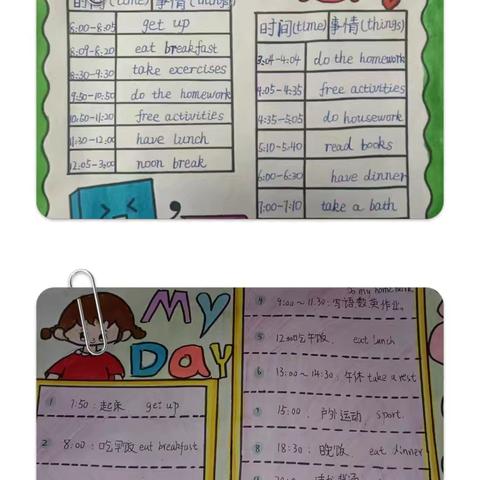 时间(time) 事情(things)
8:00-8:05 get up
8:09-8:20 eat breakfast
8:30-9:30 take exercises
9:50-10:50 do the homework
10:50-11:20 free activities
11:30-12:00 have lunch
12:05-3:00 noon break
时间(time) 事情(things)
3:04-4:04 do the homework
4:05-4:35 free activities
4:35-5:05 do housework
5:10-5:40 read books
6:00-6:30 have dinner
7:00-7:10 take a bath
My
Day
① 7:50:起床 get up
2 8:00:吃早饭 eat breakfast
do my homework
④ 9:00~11:30:写语数英作业。
⑤ 12:00吃午饭、 eat lunch
⑥ 13:00~14:30:午休 take a rest
7 15:00、户外运动、sport.
⑧ 18:30:晚饭、 eat dinner